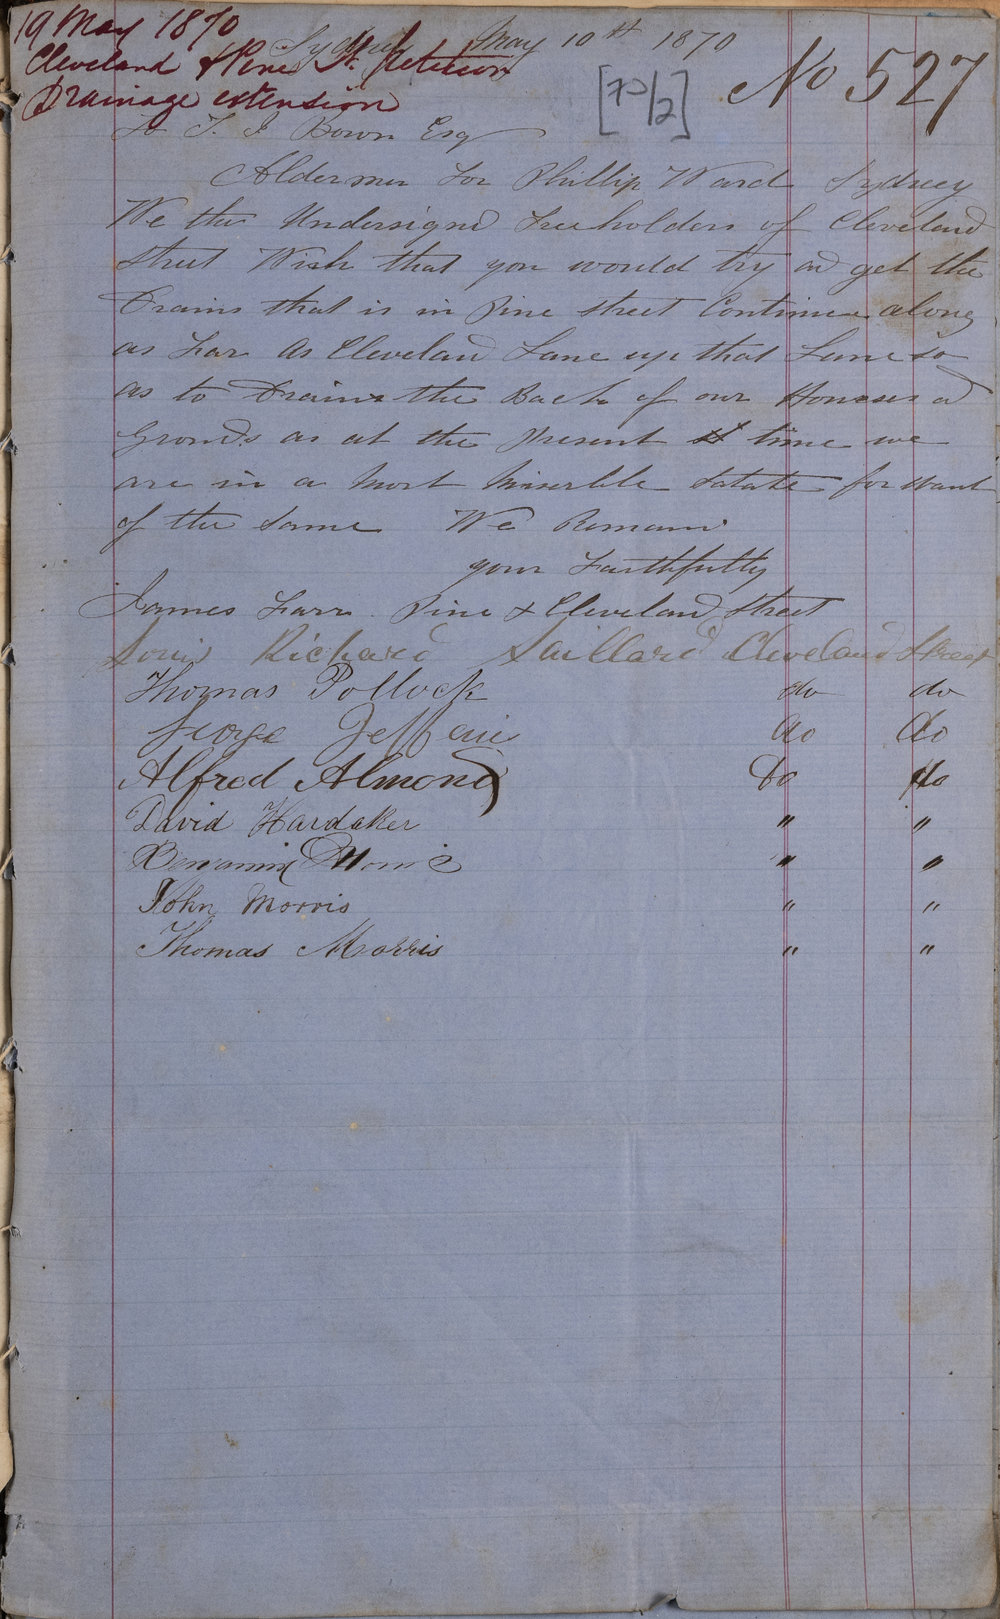 19 May 1870
Cleveland & Pine St. petition
Drainage extension
Sydney May 10th 1870
[70/2]
No 527
To T. J Bown Esq
Aldermen for Phillip Ward Sydney
We the Undersigned freeholders of Cleveland
Street Wish that you would try and get the
Drains that is in Pine Street Continue along
as far as Cleveland Lane up that Lane so
as to Drain the Back of our Houses a
Grounds as at the Present time we
are in a most miserble Satate for want
of the Same We Remain
your Faithfully
James Farr. Pine & Cleveland Street
Louis Richard Saillard Cleveland Street
Thomas Pollock do do
George Jeffrie do do
Alfred Almond Do do
David Hardaker " "
Benjamin Morris " "
John Morris " "
Thomas Morris " "